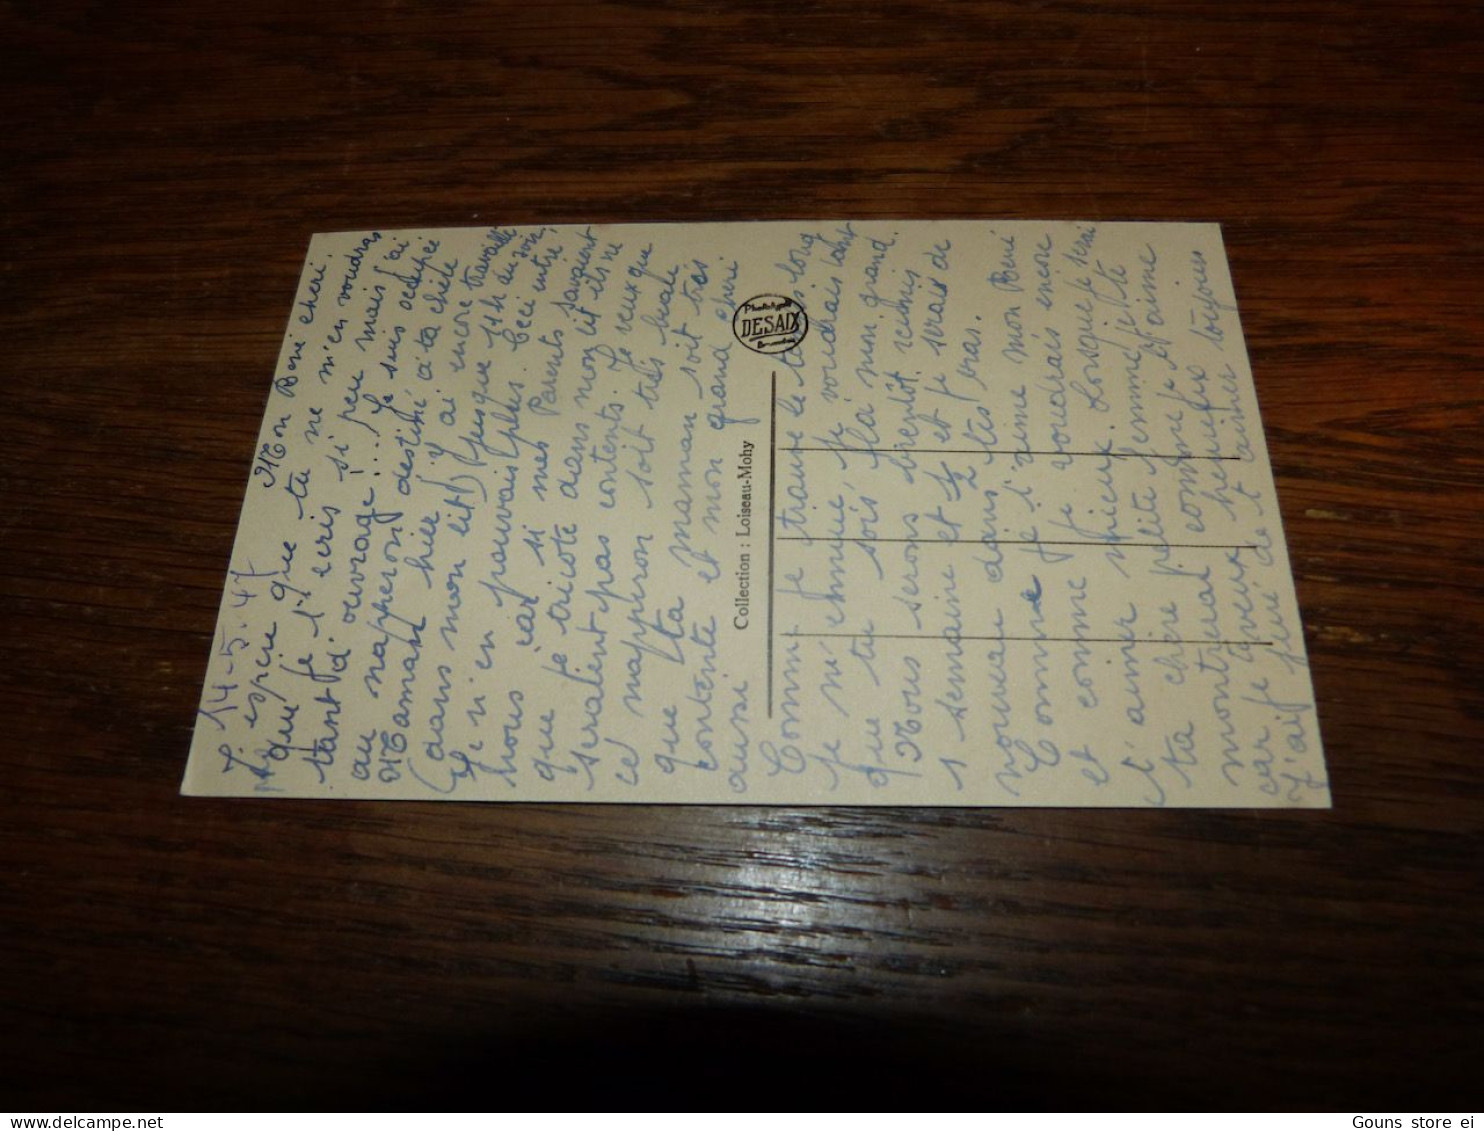 14-5-47
Mon Beni cheri.
J'espère que tu ne m'en voudras
que je t'écris si peu mais j'ai
tant d'ouvrage!... Je suis occupée
au napperon destiné à ta chère
Maman hier j'y ai encore travaillé
(dans mon lit) jusque 11 h du soir,
Je n'en pouvais plus. Ceci entre
nous car si mes Parents savaient
que je tricote dans mon lit ils ne
seraient pas contents. Je veux que
ce nappron soit très beau
que ta maman soit très
contente et mon grand cheri
aussi
Collection : Loiseau-Mohy
Phototypie
DESAIX
Bruxelles
Comme je trouve le temps long
je m'ennuie, je voudrais tant
que tu sois là mon grand.
Nous serons bientôt réunis
1 semaine et ½ et je serais de
nouveau dans tes bras.
Comme je t'aime mon Beni
et comme je voudrais encore
t'aimer mieux. Lorsque je serai
ta chère petite femme je te
montrerai comme je t'aime
car je veux heureux toujours
J'ai juré de t'aimer
Gouns store ei